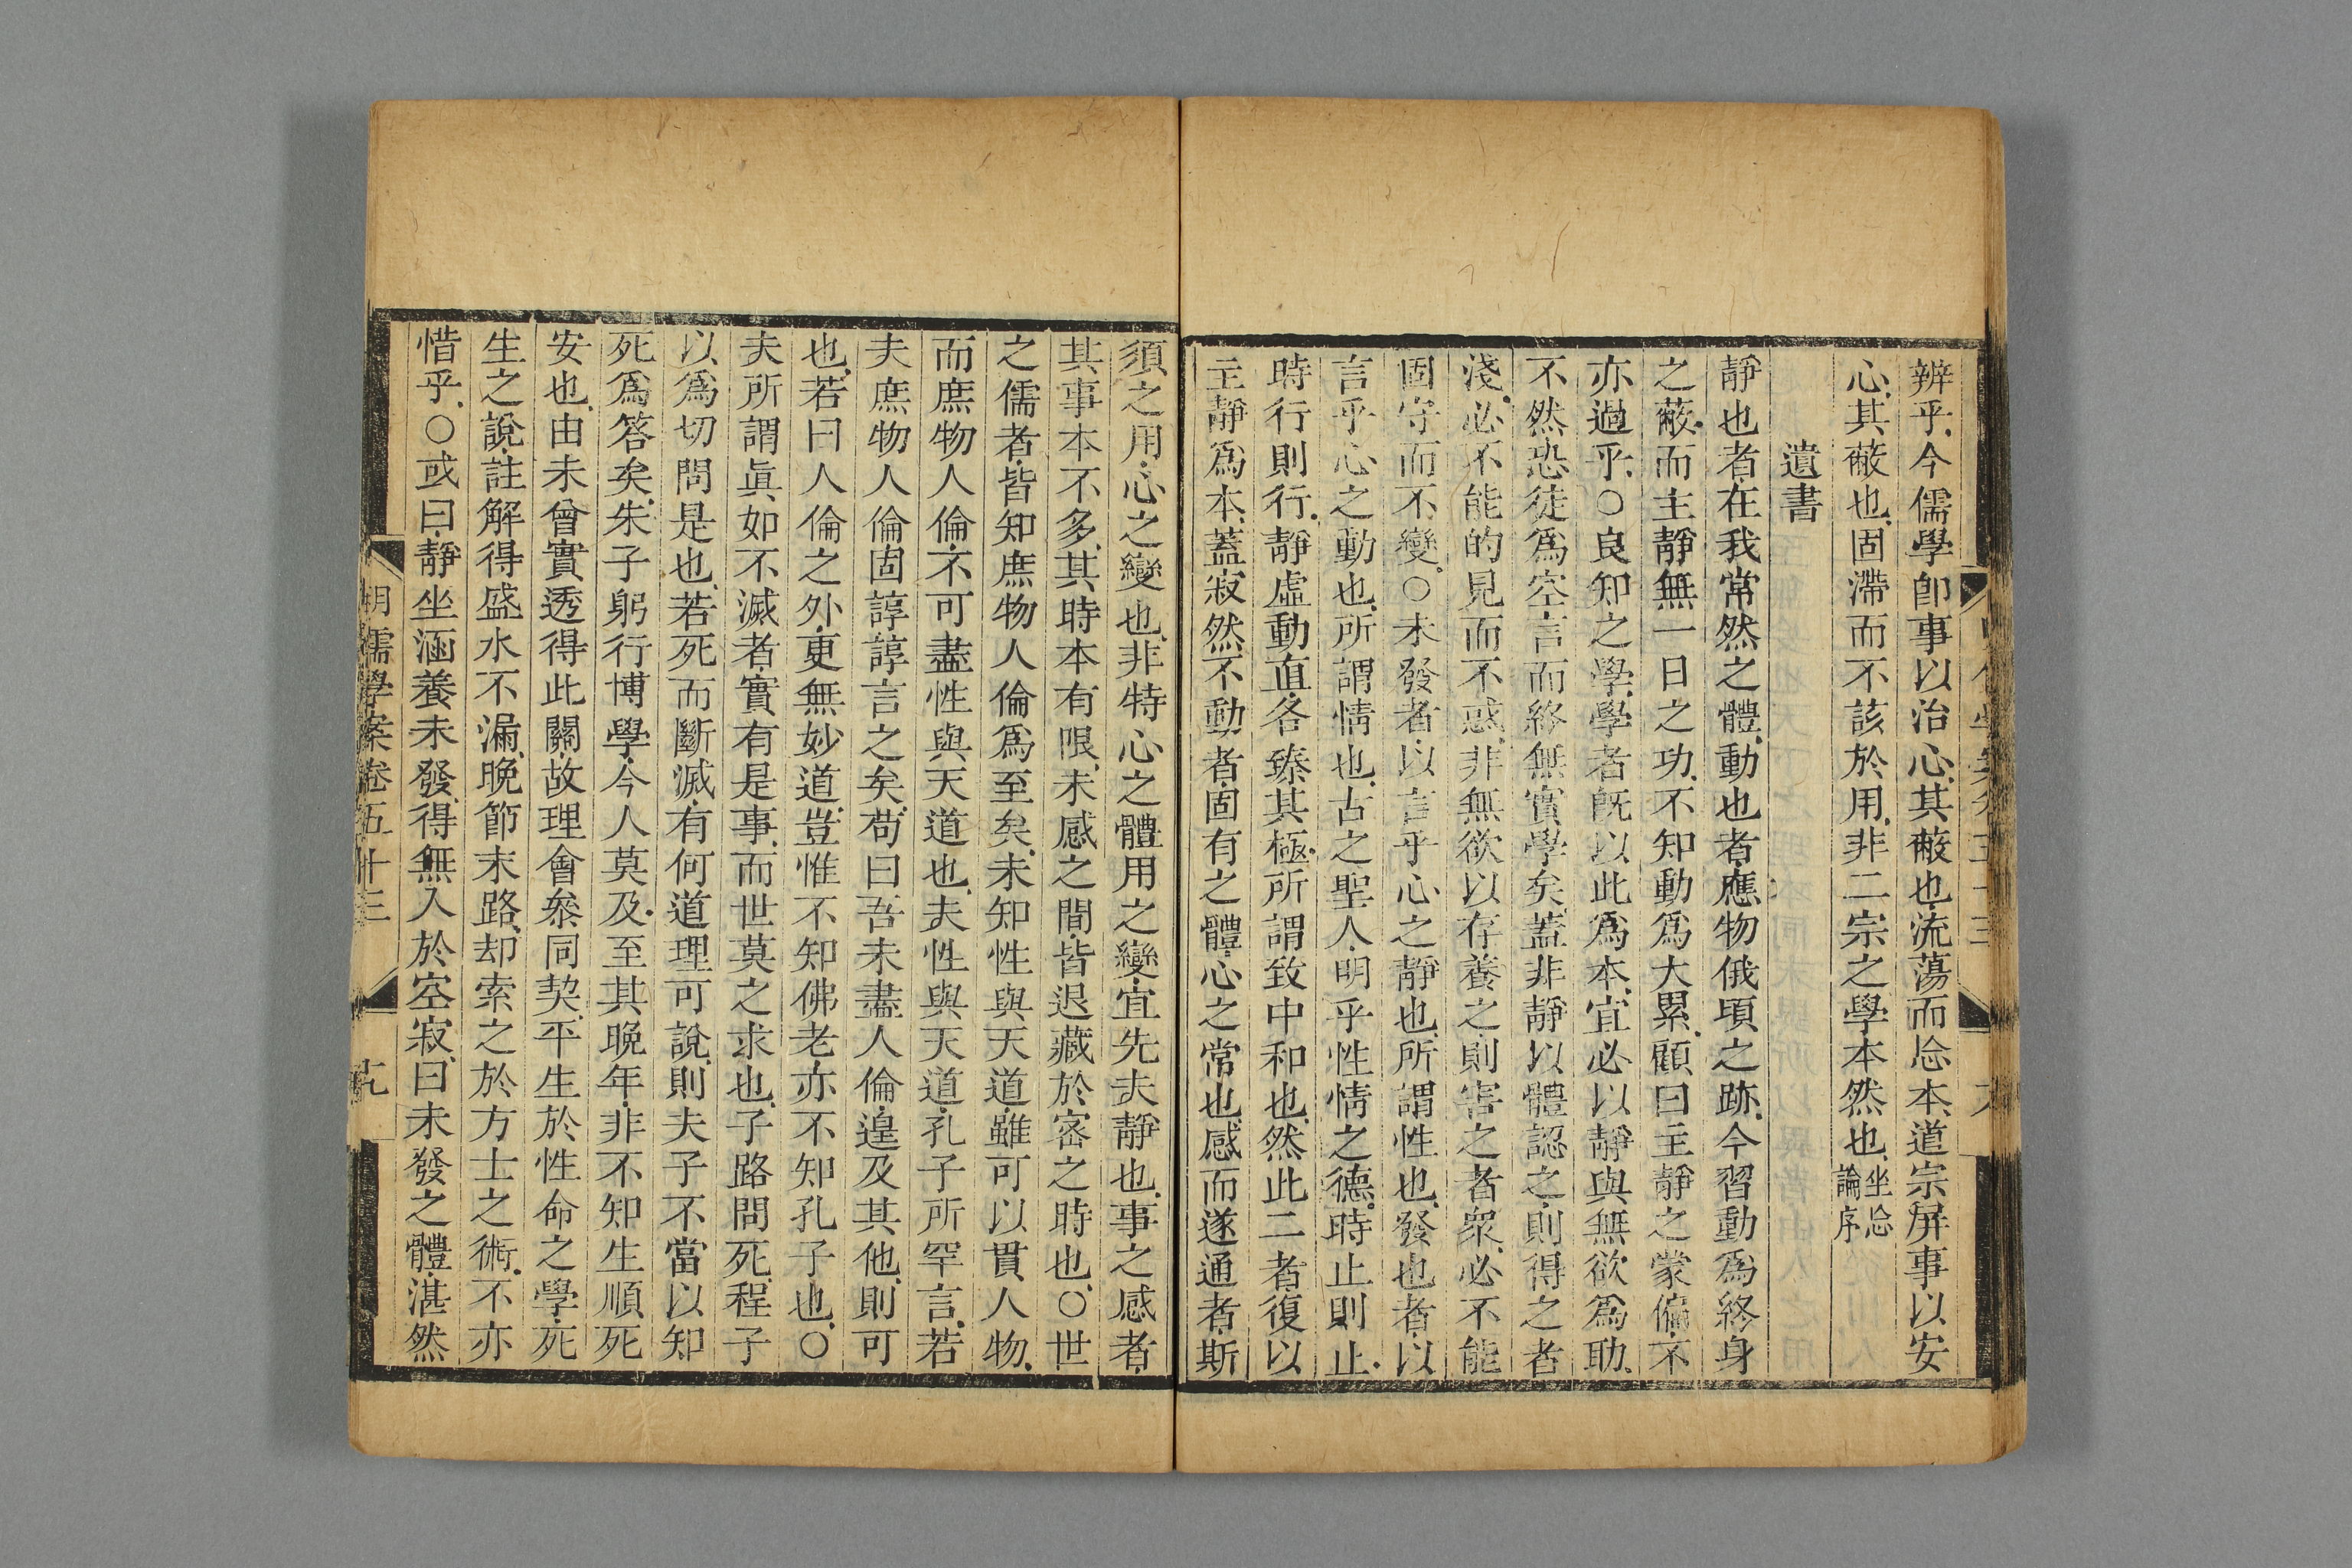 辨乎今儒學卽事以治心其蔽也流蕩而忘本道宗屏事以安
心其蔽也固滯而不該於用非二宗之學本然也坐忘論序
遺書
靜也者在我常然之體動也者應物俄頃之跡今習動爲終身
之蔽而主靜無一日之功不知動爲大累顧曰主靜之蒙偏不
亦過乎○良知之學學者旣以此爲本宜必以靜與無欲爲助
不然恐徒爲空言而終無實學矣蓋非靜以體認之則得之者
淺必不能的見而不惑非無欲以存養之則害之者衆必不能
固守而不變○未發者以言乎心之靜也所謂性也發也者以
言乎心之動也所謂情也古之聖人明乎性情之德時止則止
時行則行靜虛動直各臻其極所謂致中和也然此二者復以
主靜爲本蓋寂然不動者固有之體心之常也感而遂通者斯
須之用心之變也非特心之體用之變宜先夫靜也事之感者
其事本不多其時本有限未感之間皆退藏於密之時也○世
之儒者皆知庶物人倫爲至矣未知性與天道雖可以貫人物
而庶物人倫不可盡性與天道也夫性與天道孔子所罕言若
夫庶物人倫固諄諄言之矣苟曰吾未盡人倫遑及其他則可
也若曰人倫之外更無妙道豈惟不知佛老亦不知孔子也○
夫所謂眞如不滅者實有是事而世莫之求也子路問死程子
以爲切問是也若死而斷滅有何道理可說則夫子不當以知
死爲答矣朱子躬行博學今人莫及至其晚年非不知生順死
安也由未曾實透得此關故理會叅同契平生於性命之學死
生之說註解得盛水不漏晚節末路却索之於方士之術不亦
惜乎○或曰靜坐涵養未發得無入於空寂曰未發之體湛然
明儒學案卷五十三 十九